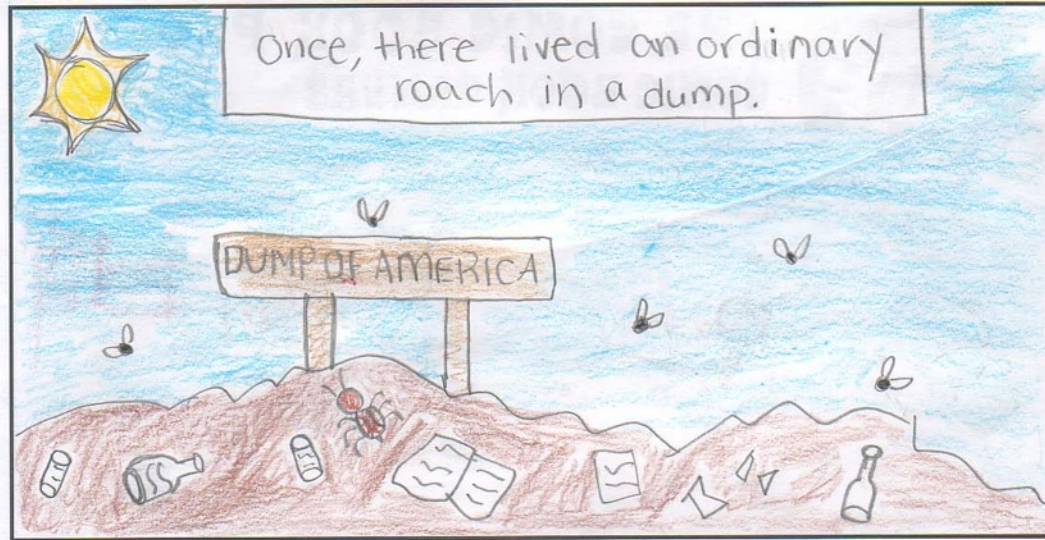 Once, there lived an ordinary
roach in a dump.
DUMP OF AMERICA